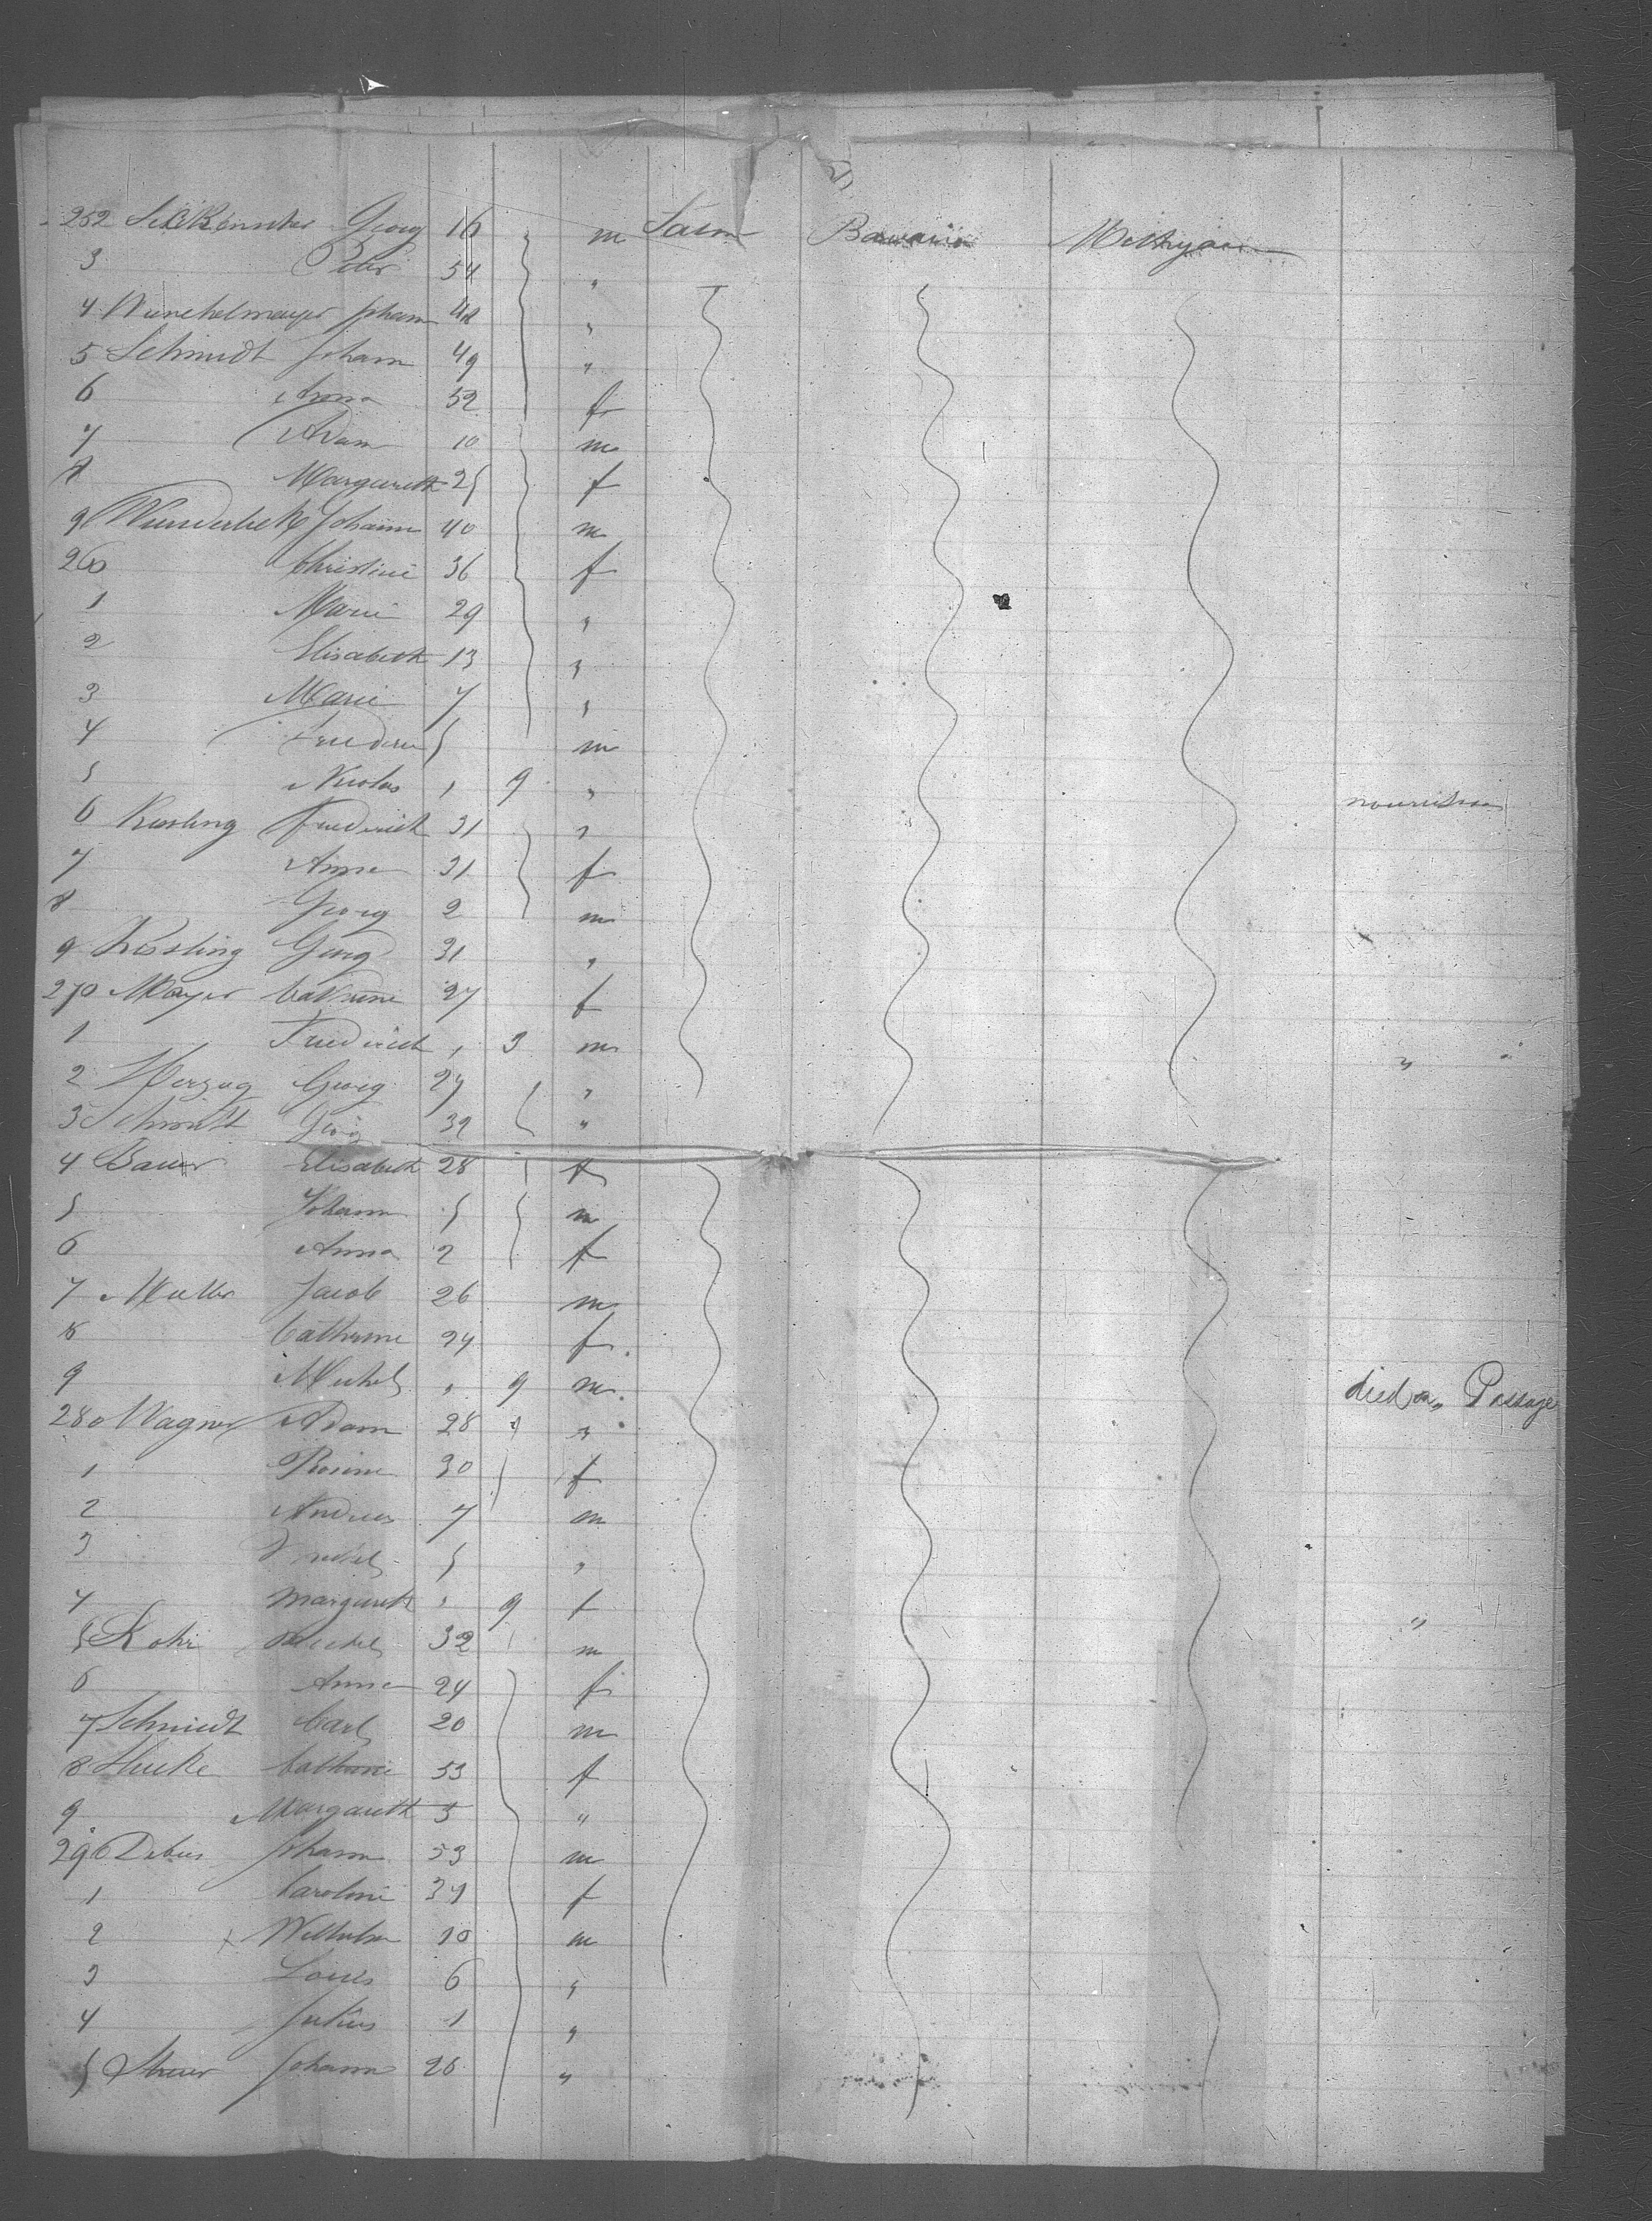 252 Georg 16 m Farm Bavaria Michigan
3 Peter 54 "
4 Winchelmayer Johann 48 "
5 Schmidt Johann 49 "
6 Anna 52 f
7 Adam 10 m
8 Margareth 25 f
9 Wunderlich Johann 40 m
260 Christine 36 f
1 Marie 29 "
2 Elisabeth 13 "
3 Marie 7 "
4 5 m
5 Nicolas , 9 "
6 Kissling Friedrich 31 "
7 Anna 31 f
8 Georg 2 m
9 Kissling Georg 31 "
270 Mayer Cathrine 27 f
1 Friedrich , 3 m " "
2 Herzog Georg 27 "
3 Schmidt Georg 32 "
4 Bauer Elisabeth 28 f
5 Johann 5 m
6 Anna 2 f
7 Muller Jacob 26 m
8 Cathrine 24 f
9 Michel " 9 m died on Passage
280 Wagner Adam 28 "
1 Rosine 30 f
2 Andreas 7 m
3 Michel 5 "
4 Margareth " 9 f "
5 Rohr Michel 32 m
6 Anna 24 f
7 Schmidt Carl 20 m
8 Cathrine 53 f
9 Margareth 5 "
290 Debus Johann 53 m
1 Caroline 34 f
2 Wilhelm 10 m
3 Louis 6 "
4 Julius 1 "
5 Johann 26 "